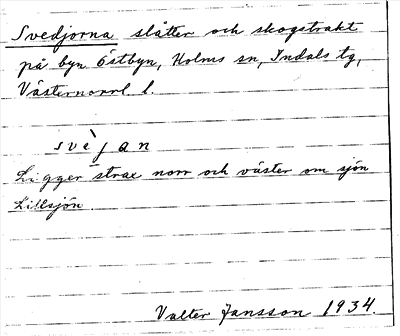 Svedjorna slåtter och skogstrakt
på byn Östbyn, Holms sn, Indals tg,
Västernorrl. l.
svèjan
Ligger strax norr och väster om sjön
Lillsjön.
Valter Jansson 1934.